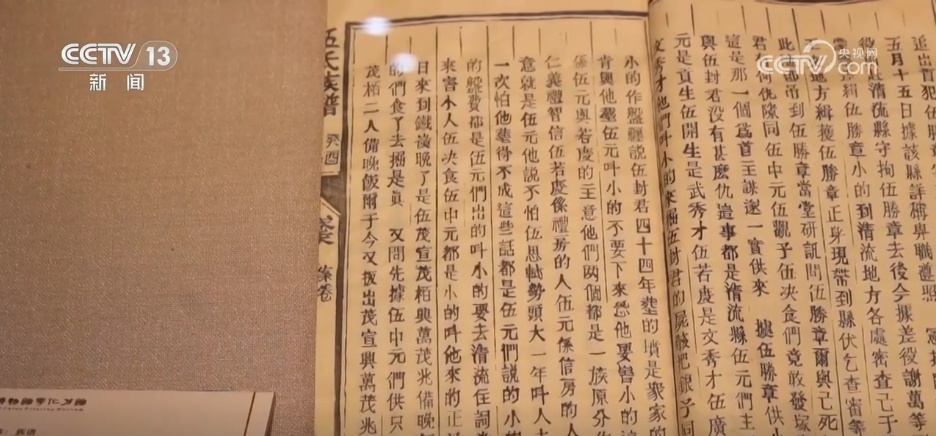 CCTV 13
新闻
央视网
CCTV.com
近出首犯伍
五月十五日據該縣詳稱卑職遵照
清流縣守拘伍勝章去後今據差役謝萬等
緝伍勝章小的到清流地方各處密查已于
地方緝獲伍勝章正身現帶到縣伏乞查審等
此帶到伍勝章當堂研訊問伍勝章爾與已死
君有何仇隙同伍中元伍觀予伍决食們竟敢發塚
這是那一個爲首主謀遂一實供來 據伍勝章供
與伍封君没有甚麽仇這事都是清流縣伍元們主
元是貢生伍開生是武秀才伍若慶是文秀才伍
文秀才他們叫小的來掘伍封君的屍骸把銀子同
小的作盤纏説伍封君四十四年塟的墳是衆家的
肯與他塟伍元叫小的不要下來恐他要害小的
係伍元與若慶的主意他們兩個都是一族原分
仁義禮智信伍若慶係禮房的人伍元係信房的人
意就是伍元他説不怕伍思勢頭大一年叫人
一次怕他塟得不成這些話都是伍元們説的小
的盤費都是伍元們出的叫小的要去清流住詞
來害小人伍决食伍中元都是小的叫他來的正
日來到鐵黄晚了是伍茂宣茂栢興萬茂兆備晚
的們食了去掘是真 又問先據伍中元們供只
茂栢二人備晚飯爾于今又扳出茂宣興萬茂兆
伍氏族譜 癸酉
卷
族谱